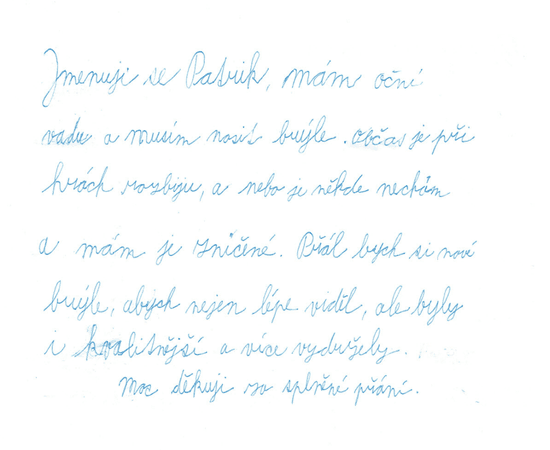 Jmenuji se Patrik, mám oční
vadu a musím nosit brýle. Občas je při
hrách rozbiju, a nebo je někde nechám
a mám je zničené. Přál bych si nové
brýle, abych nejen lépe viděl, ale byly
i kvalitnější a více vydržely.
Moc děkuji za splněné přání.